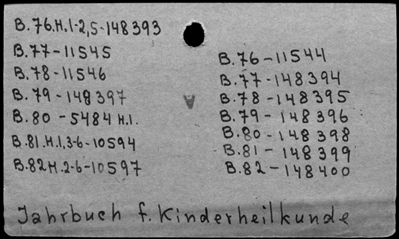 B.76.H.1-2,5-148393
B.77-11545
B.78-11546
B.79-148397
B.80-5484 H.1.
B.81.H.1,3-6-10594
B.82H.2-6-10597
B.76-11544
B.77-148394
B.78-148395
B.79-148396
B.80-148398
B.81-148399
B.82-148400
Jahrbuch f. Kinderheilkunde